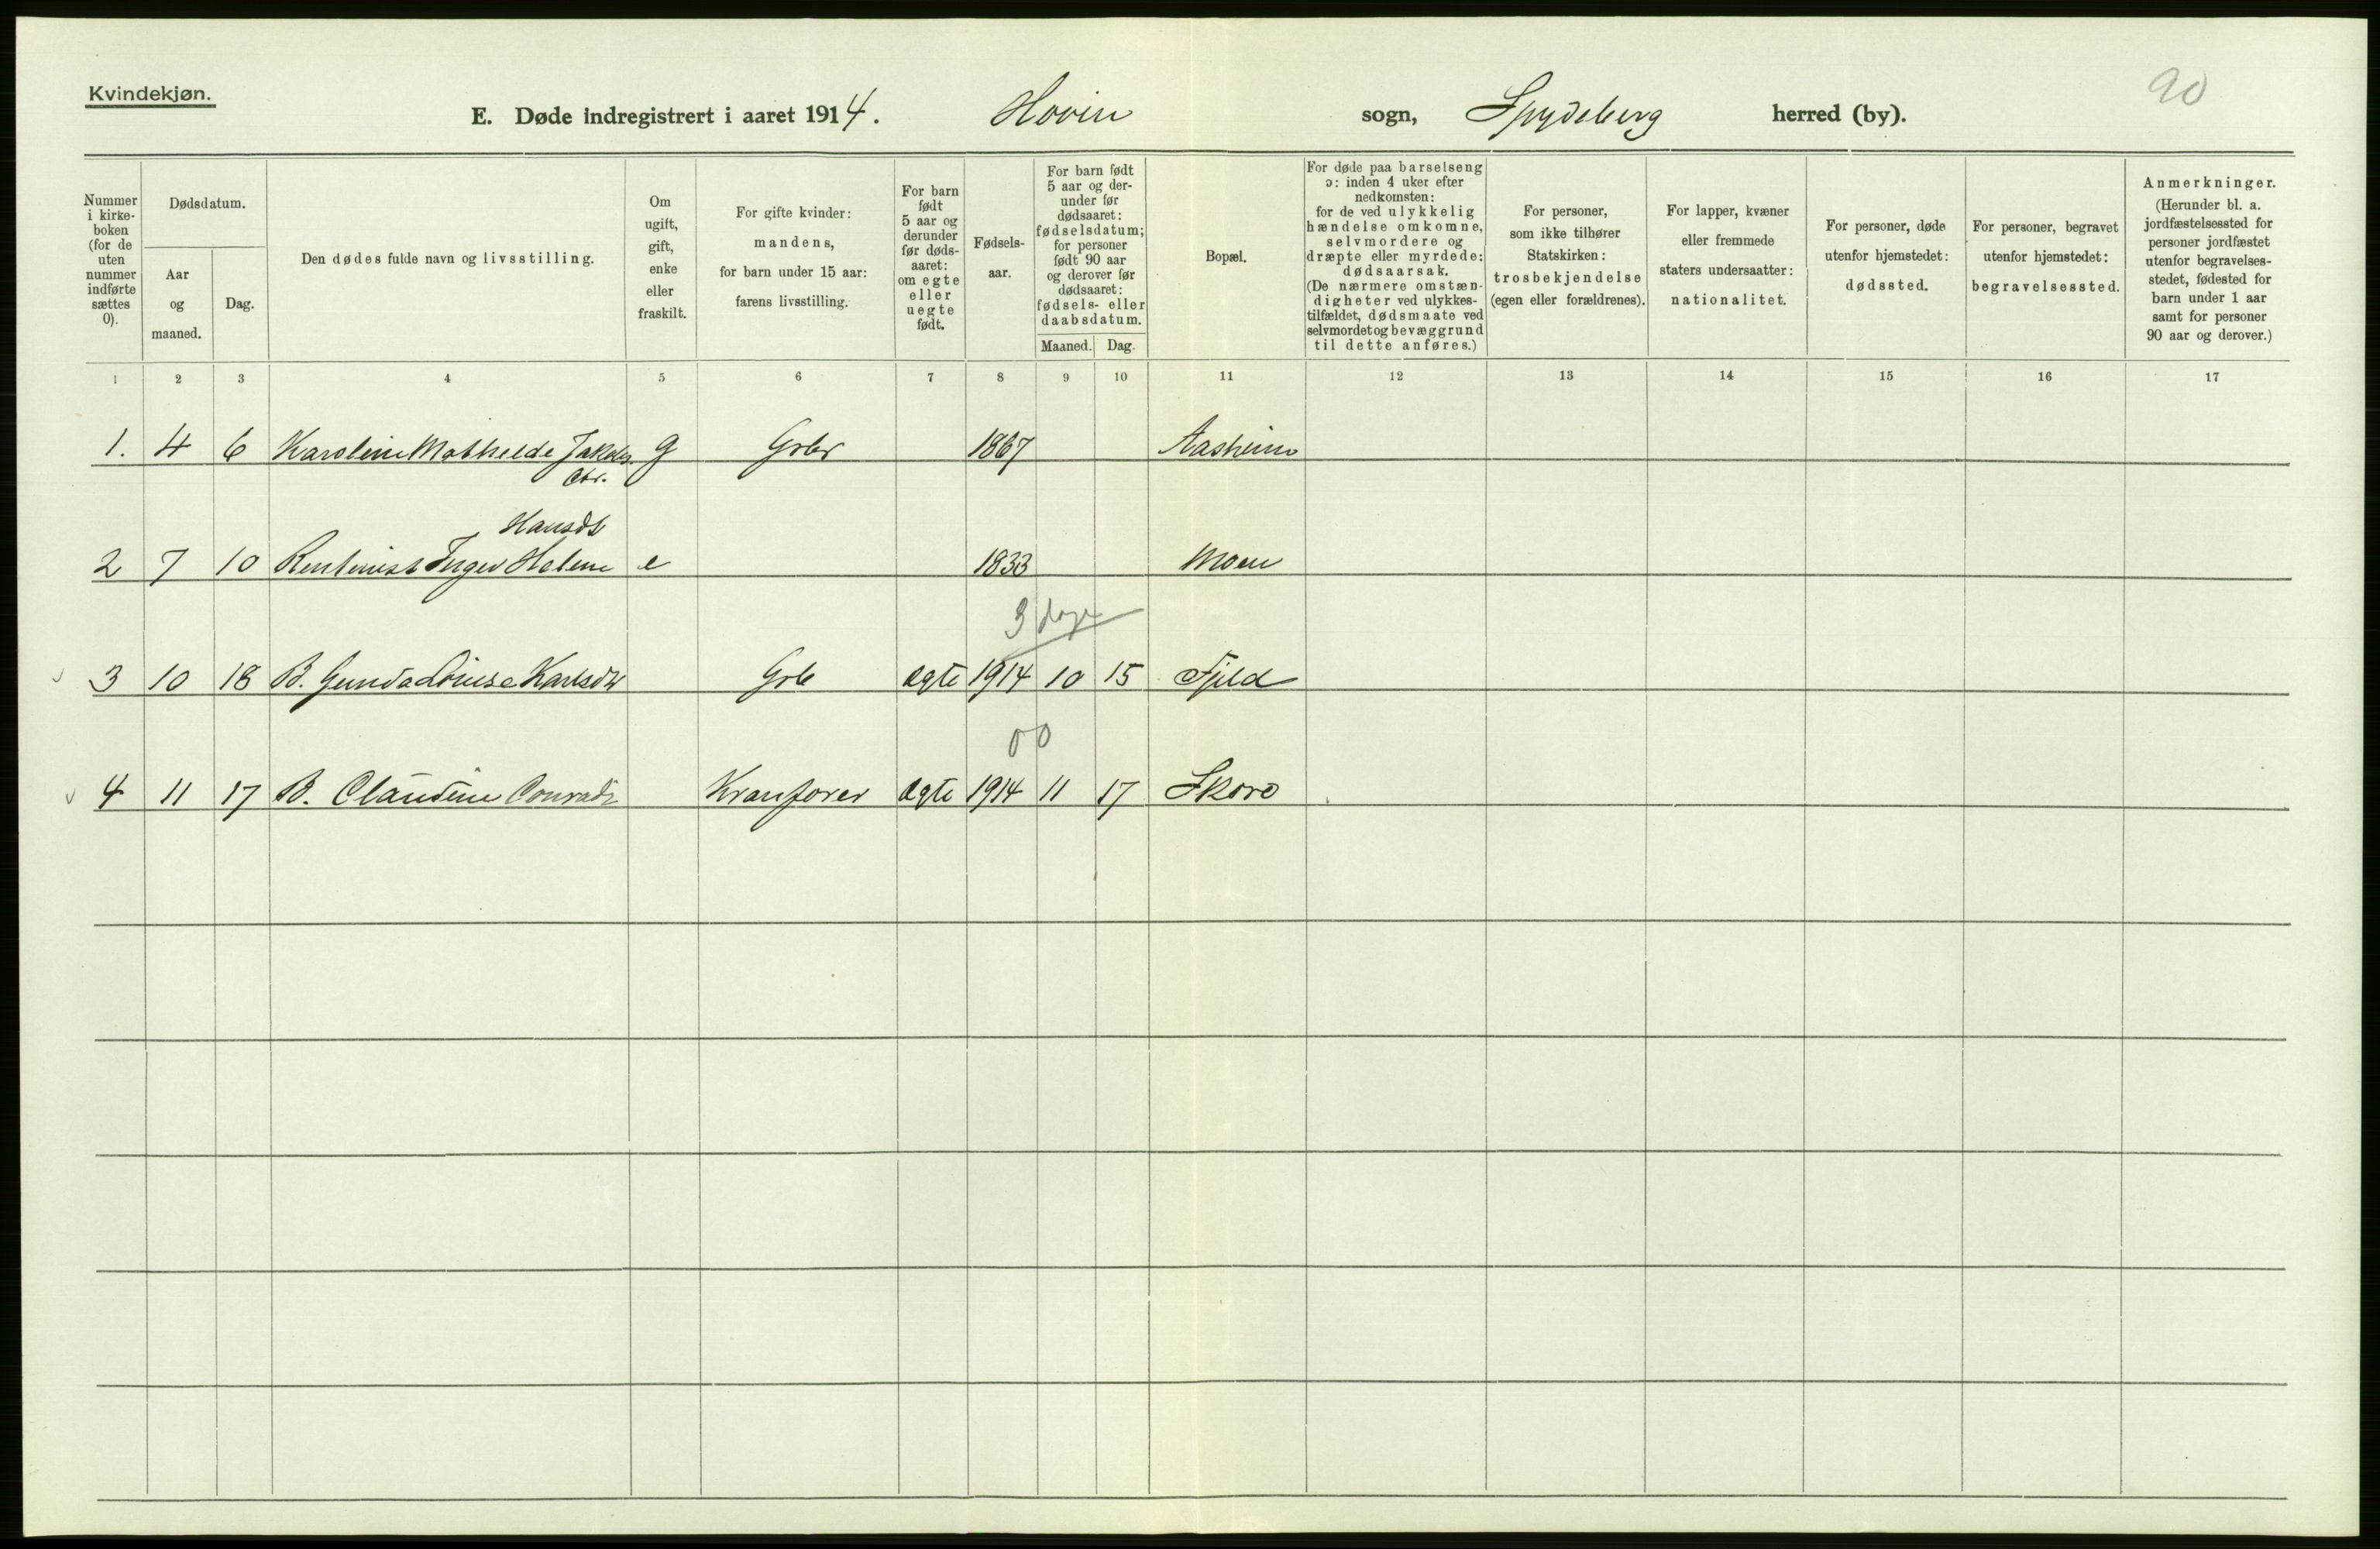 Kvindekjøn.
90
E. Døde indregistrert i aaret 1914. Hovin sogn, Spydeberg herred (by).
Nummer i kirke- boken (for de uten nummer indførte sættes 0).
Dødsdatum.
Aar og maaned.
Dag.
Den dødes fulde navn og livsstilling.
Om ugift, gift, enke eller fraskilt.
For gifte kvinder: mandens, for barn under 15 aar: farens livsstilling.
For barn født 5 aar og derunder før døds- aaret: om egte eller uegte født.
Fødsels- aar.
For barn født 5 aar og der- under før dødsaaret: fødselsdatum; for personer født 90 aar og derover før dødsaaret: fødsels- eller daabsdatum.
Maaned. Dag.
Bopæl.
For døde paa barselseng ɔ: inden 4 uker efter nedkomsten: for de ved ulykkelig hændelse omkomne, selvmordere og dræpte eller myrdede: dødsaarsak. (De nærmere omstæn- digheter ved ulykkes- tilfældet, dødsmaate ved selvmordet og bevæggrund til dette anføres.)
For personer, som ikke tilhører Statskirken: trosbekjendelse (egen eller forældrenes).
For lapper, kvæner eller fremmede staters undersaatter: nationalitet.
For personer, døde utenfor hjemstedet: dødssted.
For personer, begravet utenfor hjemstedet: begravelsessted.
Anmerkninger. (Herunder bl. a. jordfæstelsessted for personer jordfæstet utenfor begravelses- stedet, fødested for barn under 1 aar samt for personer 90 aar og derover.)
1 2 3 4 5 6 7 8 9 10 11 12 13 14 15 16 17
1. 4 6 Karoline Mathilde g Grbr 1867 Aasheim
Hansdt
2 7 10 Rentenist Inger Helene e 1833 Moen
3 dage
3 10 18 B. Gunda Louise Karlsdt Grb egte 1914 10 15 Fjeld
00
4 11 17 B. Claudine Conradi Kranfører egte 1914 11 17 Skoro